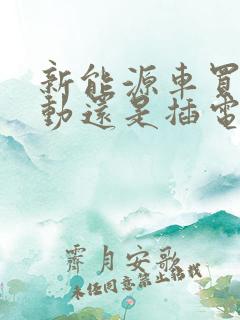 新能源車買
動還是插電
霽月安歌
未经同意禁止转载